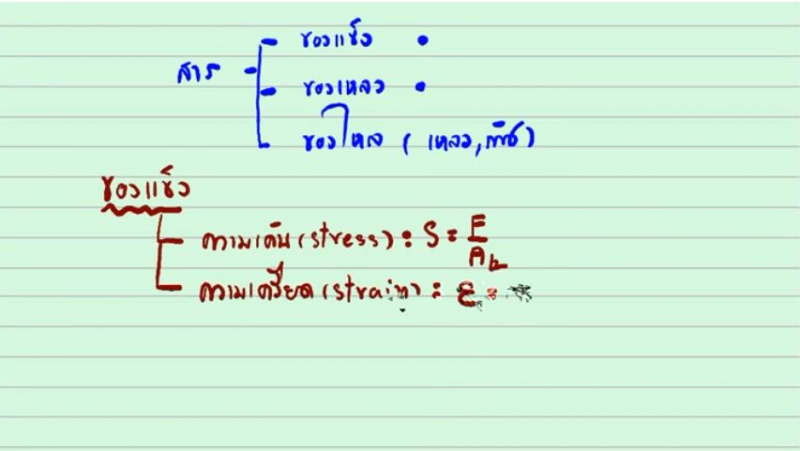 ของแข็ง
สาร
ของเหลว
ของไหล (เหลว, ก๊าซ)
ของแข็ง
ความเค้น (stress) : S = F/A⊥
ความเครียด (strain) : ε =